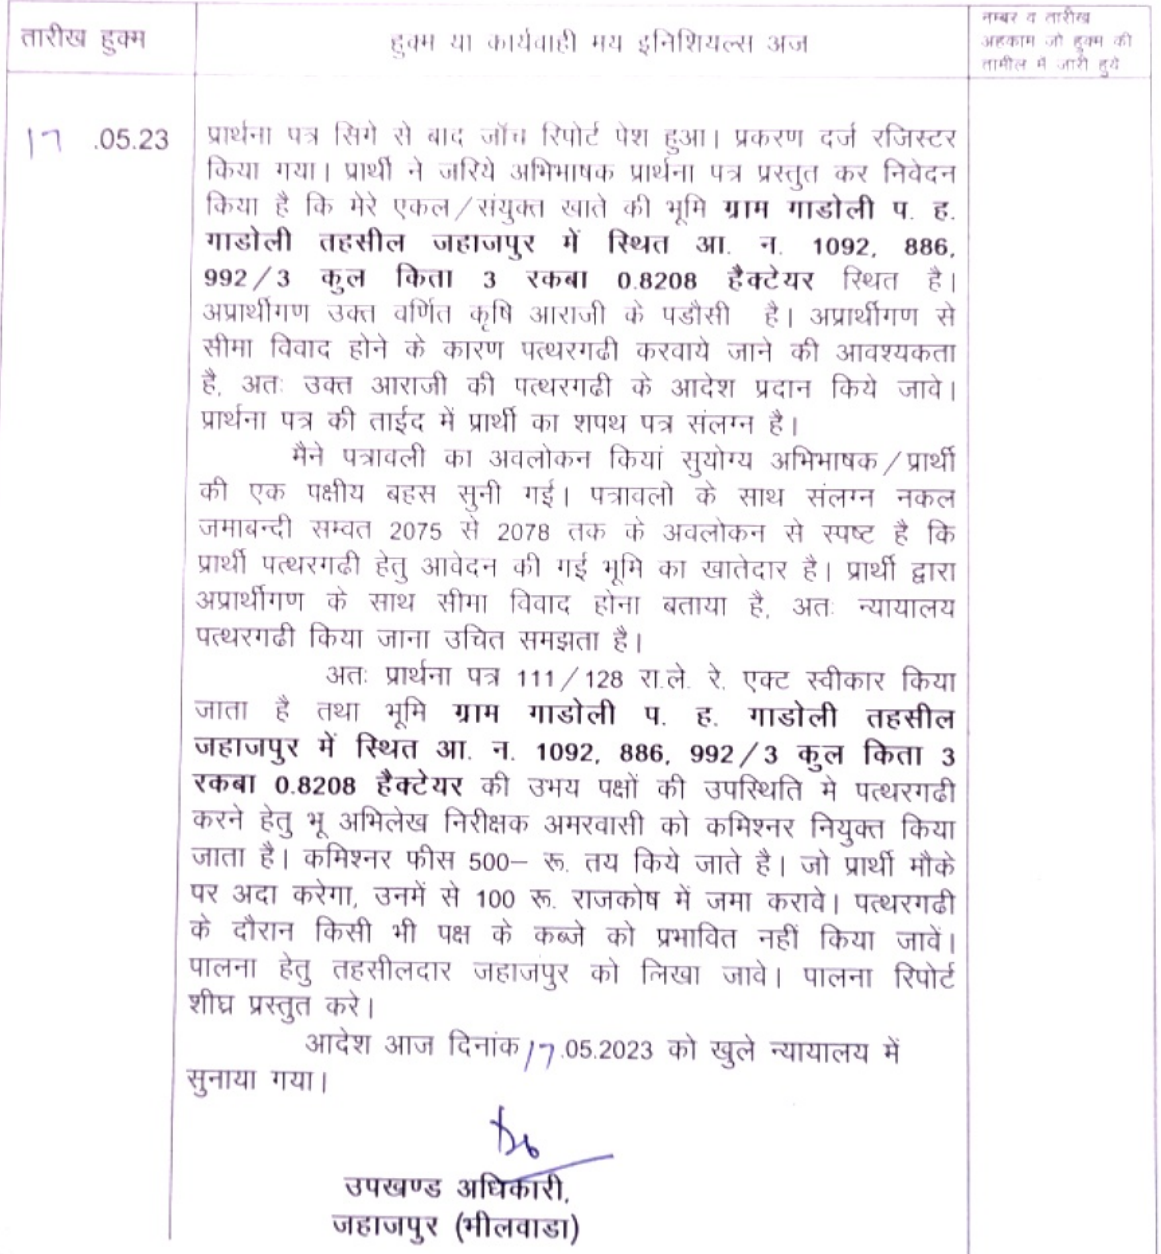 तारीख हुक्म
हुक्म या कार्यवाही मय इनिशियल्स अज
नम्बर व तारीख
अहकाम जो हुक्म की
तामील में जारी हुये
17 .05.23
प्रार्थना पत्र सिगे से बाद जॉच रिपोर्ट पेश हुआ। प्रकरण दर्ज रजिस्टर
किया गया। प्रार्थी ने जरिये अभिभाषक प्रार्थना पत्र प्रस्तुत कर निवेदन
किया है कि मेरे एकल/संयुक्त खाते की भूमि ग्राम गाडोली प. ह.
गाडोली तहसील जहाजपुर में स्थित आ. न. 1092, 886,
992/3 कुल किता 3 रकबा 0.8208 हैक्टेयर स्थित है।
अप्रार्थीगण उक्त वर्णित कृषि आराजी के पडौसी है। अप्रार्थीगण से
सीमा विवाद होने के कारण पत्थरगढी करवाये जाने की आवश्यकता
है, अतः उक्त आराजी की पत्थरगढी के आदेश प्रदान किये जावे।
प्रार्थना पत्र की ताईद में प्रार्थी का शपथ पत्र संलग्न है।
मैने पत्रावली का अवलोकन कियां सुयोग्य अभिभाषक/प्रार्थी
की एक पक्षीय बहस सुनी गई। पत्रावलो के साथ संलग्न नकल
जमाबन्दी सम्वत 2075 से 2078 तक के अवलोकन से स्पष्ट है कि
प्रार्थी पत्थरगढी हेतु आवेदन की गई भूमि का खातेदार है। प्रार्थी द्वारा
अप्रार्थीगण के साथ सीमा विवाद होना बताया है, अतः न्यायालय
पत्थरगढी किया जाना उचित समझता है।
अतः प्रार्थना पत्र 111/128 रा.ले. रे. एक्ट स्वीकार किया
जाता है तथा भूमि ग्राम गाडोली प. ह. गाडोली तहसील
जहाजपुर में स्थित आ. न. 1092, 886, 992/3 कुल किता 3
रकबा 0.8208 हैक्टेयर की उभय पक्षों की उपस्थिति मे पत्थरगढी
करने हेतु भू अभिलेख निरीक्षक अमरवासी को कमिश्नर नियुक्त किया
जाता है। कमिश्नर फीस 500– रू. तय किये जाते है। जो प्रार्थी मौके
पर अदा करेगा, उनमें से 100 रू. राजकोष में जमा करावे। पत्थरगढी
के दौरान किसी भी पक्ष के कब्जे को प्रभावित नहीं किया जावें।
पालना हेतु तहसीलदार जहाजपुर को लिखा जावे। पालना रिपोर्ट
शीघ्र प्रस्तुत करे।
आदेश आज दिनांक 17.05.2023 को खुले न्यायालय में
सुनाया गया।
उपखण्ड अधिकारी,
जहाजपुर (भीलवाडा)